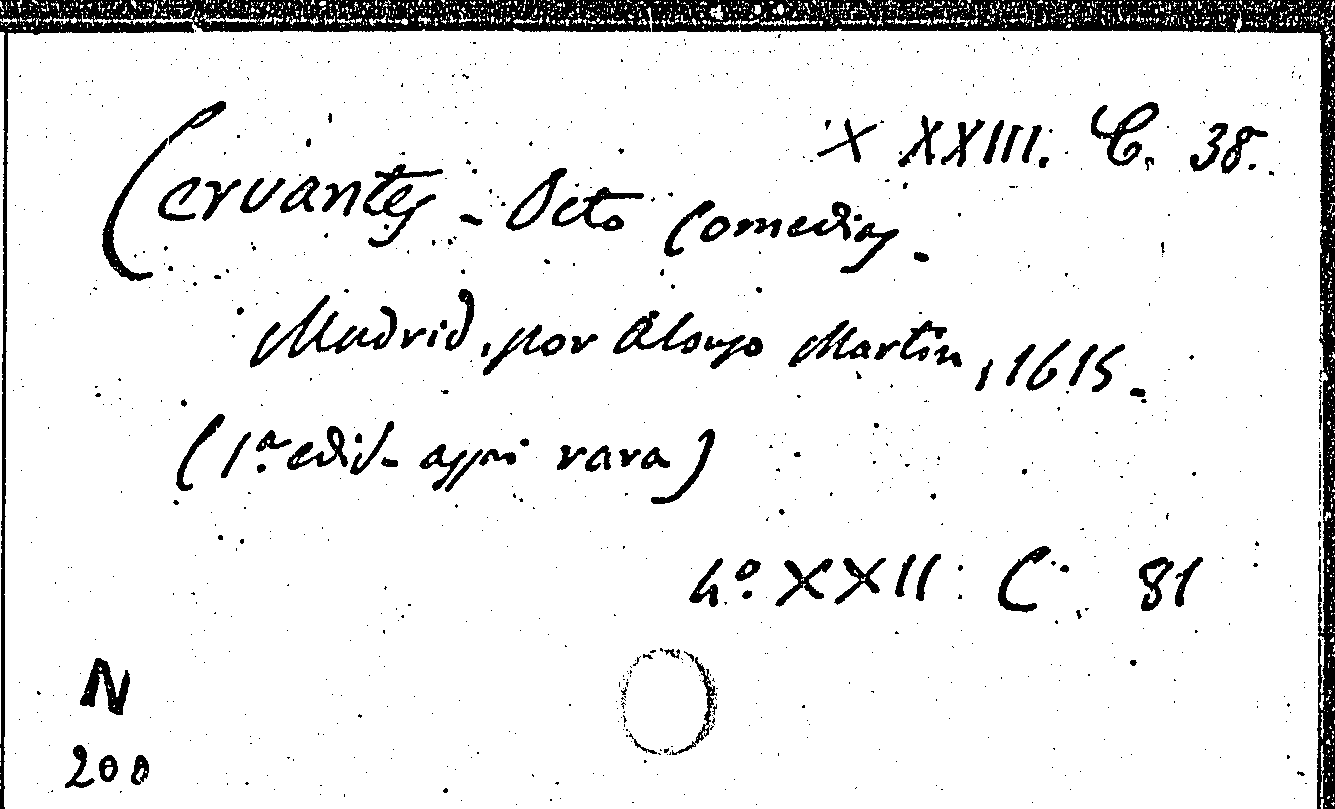 X XXIII. C. 38.
Cervantes - Octo Comedias -
Madrid, por Alonzo Martin, 1615 -
(1ª edid- assai rara)
4º XXII. C. 81
N
200